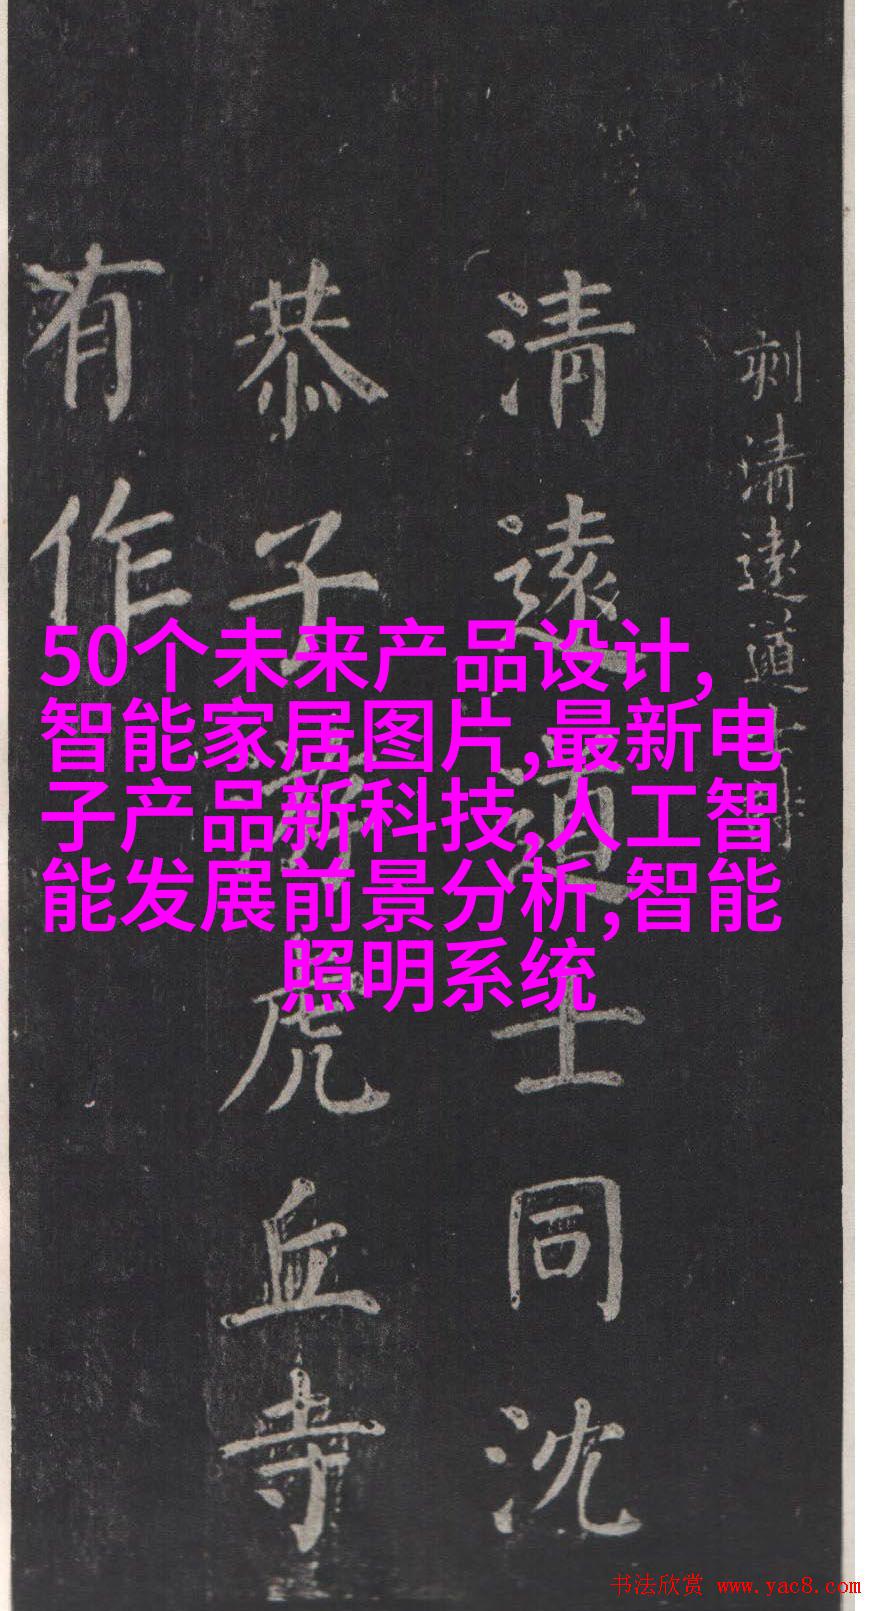 50个未来产品设计,
智能家居图片,最新电
子产品新科技,人工智
能发展前景分析,智能
照明系统
刻清遠道士
清遠道士同沈
恭子虎丘寺
有作
书法欣赏 www.yac8.com